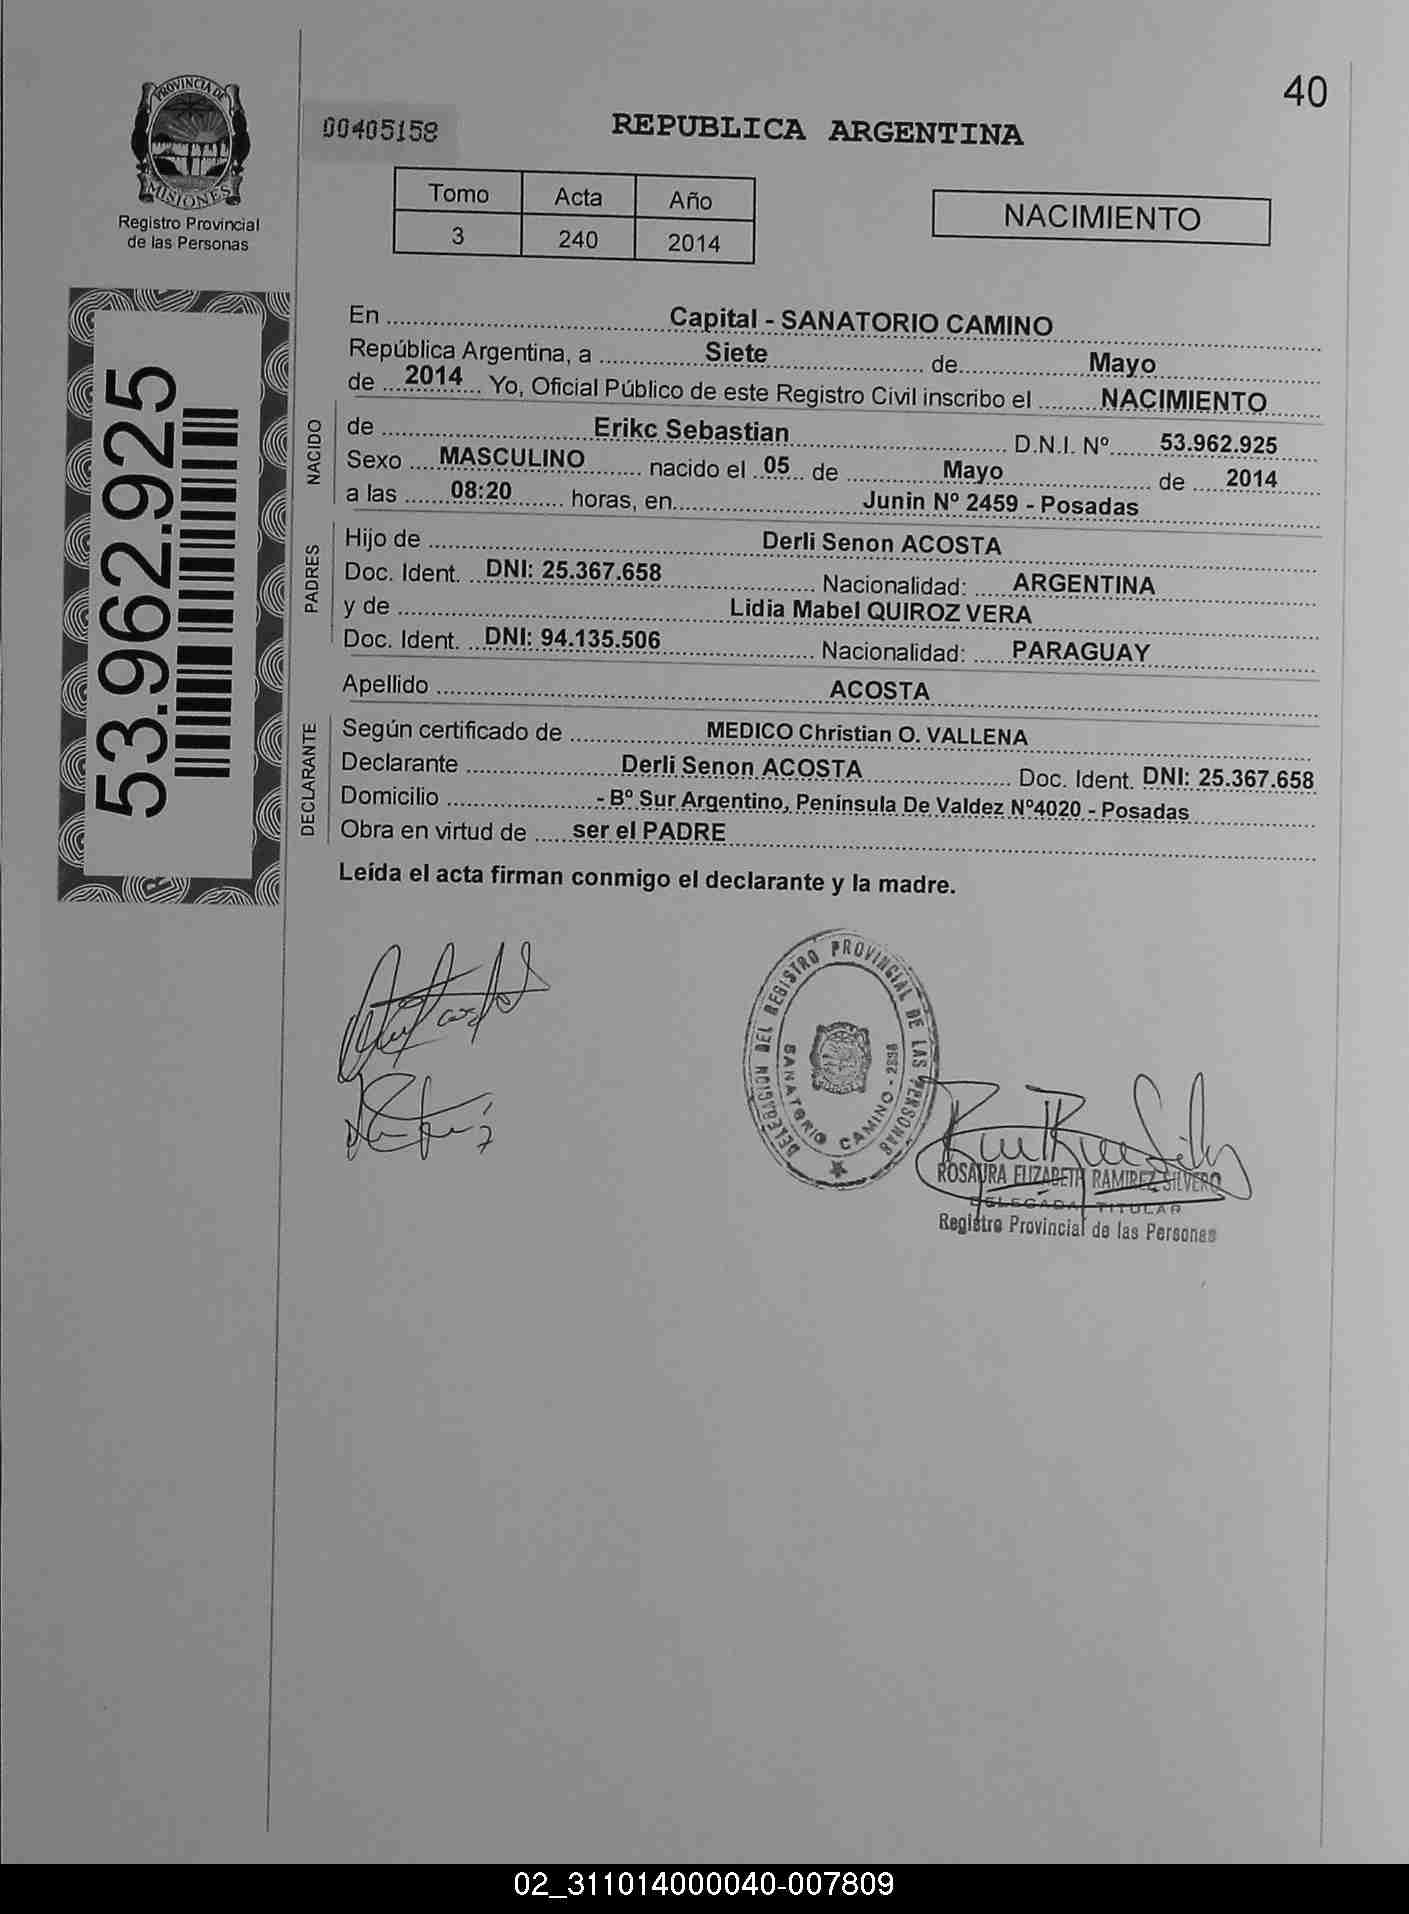 40
PROVINCIA DE
MISIONES
Registro Provincial
de las Personas
00405158
REPUBLICA ARGENTINA
Tomo Acta Año
3 240 2014
NACIMIENTO
53.962.925
En Capital - SANATORIO CAMINO
República Argentina, a Siete de Mayo
de 2014 Yo, Oficial Público de este Registro Civil inscribo el NACIMIENTO
NACIDO
de Erikc Sebastian D.N.I. Nº 53.962.925
Sexo MASCULINO nacido el 05 de Mayo de 2014
a las 08:20 horas, en Junin Nº 2459 - Posadas
PADRES
Hijo de Derli Senon ACOSTA
Doc. Ident. DNI: 25.367.658 Nacionalidad: ARGENTINA
y de Lidia Mabel QUIROZ VERA
Doc. Ident. DNI: 94.135.506 Nacionalidad: PARAGUAY
Apellido ACOSTA
DECLARANTE
Según certificado de MEDICO Christian O. VALLENA
Declarante Derli Senon ACOSTA Doc. Ident. DNI: 25.367.658
Domicilio - Bº Sur Argentino, Península De Valdez Nº4020 - Posadas
Obra en virtud de ser el PADRE
Leída el acta firman conmigo el declarante y la madre.
DELEGACION DEL REGISTRO PROVINCIAL DE LAS PERSONAS
SANATORIO CAMINO - 2898
ROSAURA ELIZABETH RAMIREZ SILVERO
DELEGADA TITULAR
Registro Provincial de las Personas
02_311014000040-007809